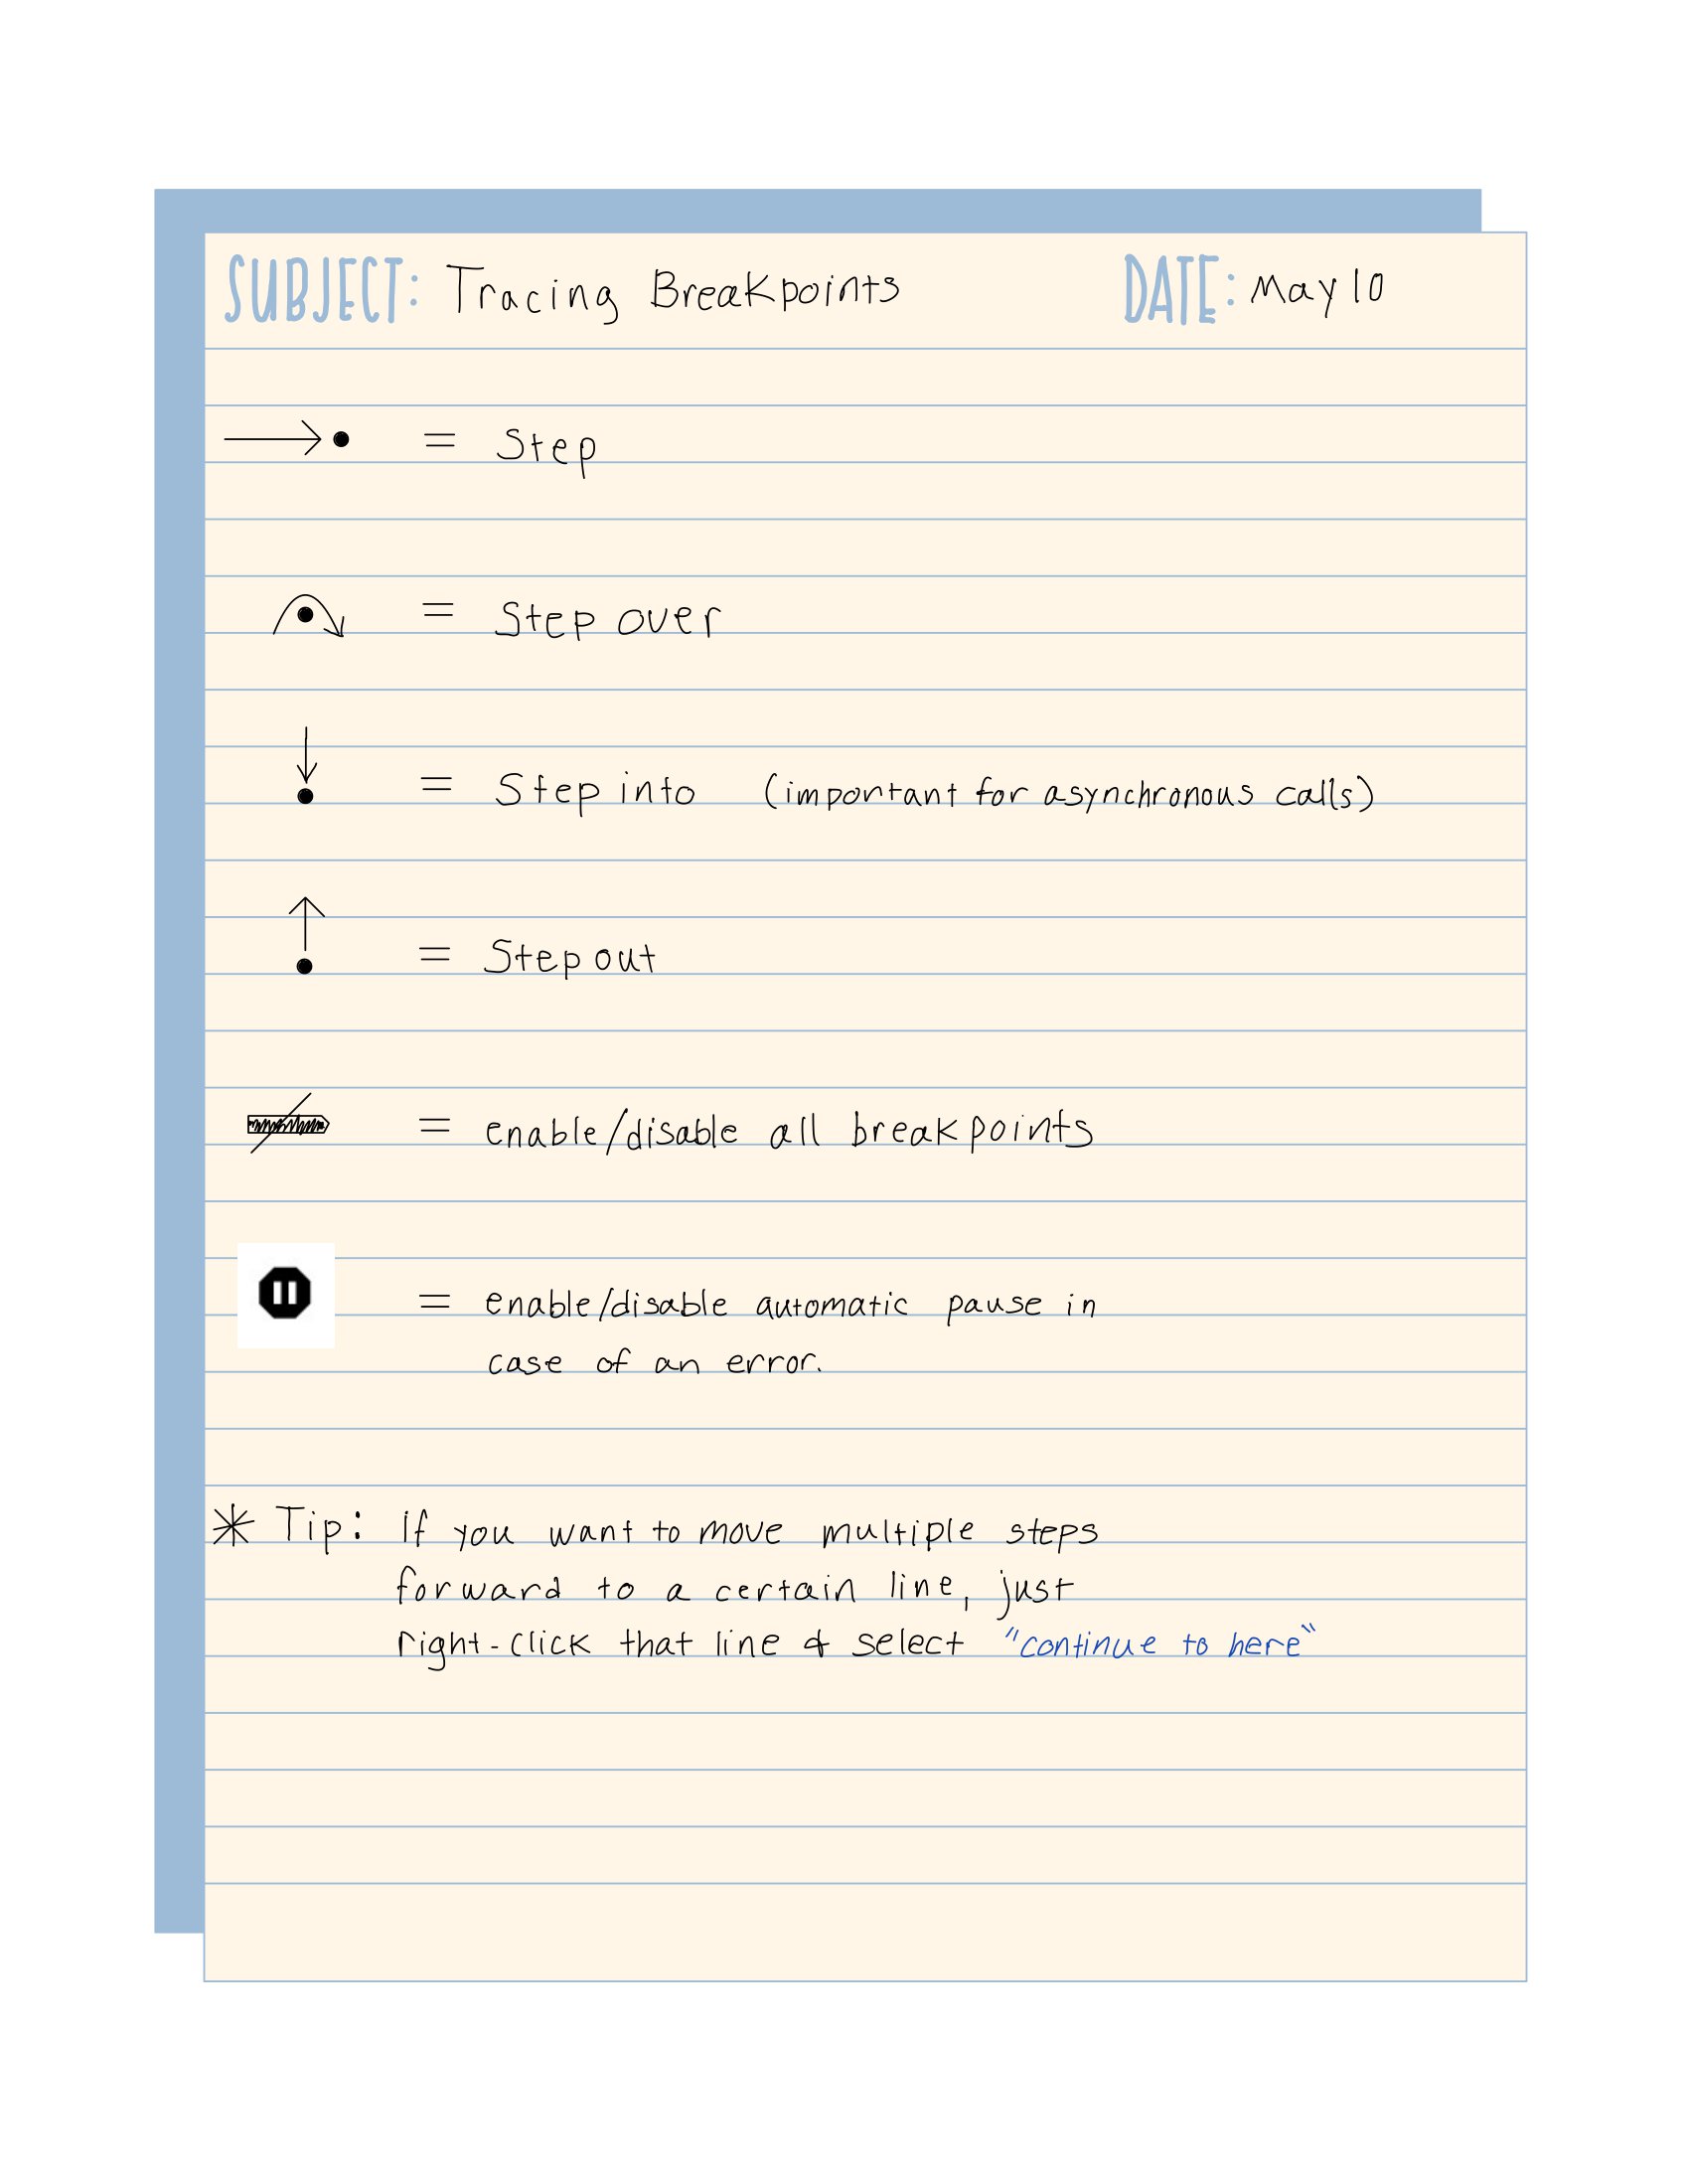 SUBJECT: Tracing Breakpoints DATE: May 10
= Step
= Step over
= Step into (important for asynchronous calls)
= Step out
= enable/disable all breakpoints
= enable/disable automatic pause in
case of an error.
* Tip: If you want to move multiple steps
forward to a certain line, just
right-click that line & select "continue to here"